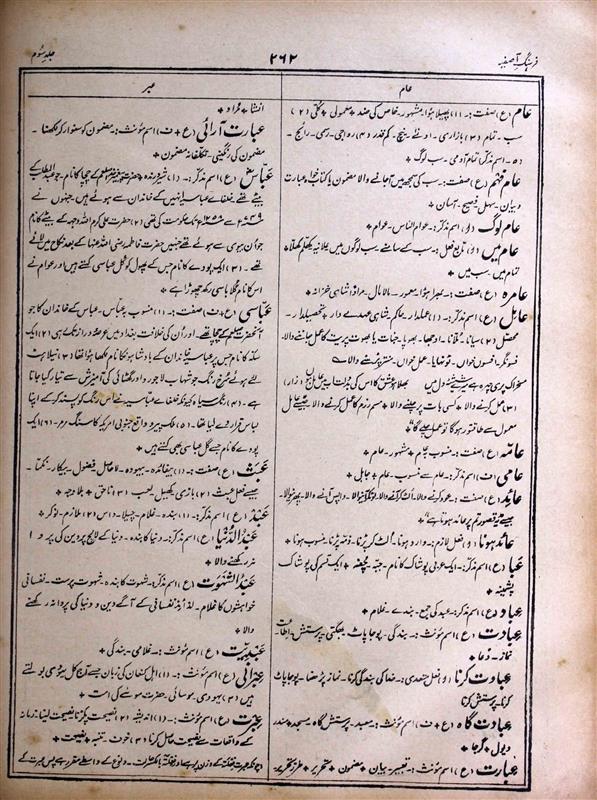 فرہنگِ آصفیہ
۲۶۲
جلد سوم
عام
عبر
عام (ع) صفت:۔ (۱) پھیلا ہوا۔ مشہور۔ خاص کی ضد۔ معمولی + کُلّی (۲)
سب۔ تمام (۳) بازاری۔ ادنےٰ۔ پنچ۔ کم قدر (۴) رواجی۔ رسمی۔ رائج۔
(۵) اسم مذکر) تمام آدمی۔ سب لوگ +
عام فہم (ع) صفت:۔ سب کی سمجھ میں آجانے والا مضمون یا کتاب خواہ عبارت
و بیان۔ سہل۔ فصیح۔ آسان +
عام لوگ (و) اسم مذکر:۔ عوام الناس۔ عوام +
عام میں (و) تابع فعل:۔ سب کے سامنے۔ سب لوگوں میں علانیہ کھلم کھلا +
تمام میں۔ سب میں +
عامرہ (ع) صفت:۔ بھرا ہوا۔ معمور۔ مالا مال۔ مراد شاہی خزانہ +
عامل (ع) اسم مذکر:۔ (۱) عملدار۔ حاکم۔ شاہی عہدے دار + تحصیلدار۔
محصّل (۲) سیانا۔ مُلّانا۔ اوجھا۔ بھوپا۔ جنات یا بھوت پریت کا عمل جاننے والا۔
فسونگر۔ افسوں خواں۔ عمل خواں۔ منتر پڑھنے والا ے
(۳) عمل کرنے والا۔ کسی بات پر چلنے والا + مسمریزم کا عمل کرنے والا۔
معمول سے طاقتور ہوگا تو عمل چلے گا +
عامّہ (ع) صفت:۔ منسوب بعام + مشہور۔ عام +
عامی (ف) اسم مذکر:۔ عام سے منسوب۔ عام + جاہل +
عائد (ع) صفت:۔ عود کرنے والا۔ اُلٹ کر آنے والا۔ لوٹنے والا۔ واپس آنے والا۔ پھرنے والا۔
جیسے یہ قصور تم پر عائد ہوتا ہے +
عائد ہونا (و) فعل لازم:۔ وارد ہونا۔ اُلٹ کر پڑنا۔ ذمّہ پڑنا۔ منسوب ہونا +
عبا (ع) اسم مذکر:۔ ایک عربی پوشاک کا نام۔ جبّہ۔ چُغہ + ایک قسم کی پوشاک
پشمینہ +
عباد (ع) اسم مذکر:۔ عبد کی جمع۔ بندے۔ غلام +
عبادت (ع) اسم مؤنث:۔ بندگی۔ پوجا پاٹ۔ بھگتی۔ پرستش۔ اطاعت
نماز۔ دُعا +
عبادت کرنا (و) فعل متعدی:۔ خدا کی بندگی کرنا۔ نماز پڑھنا۔ پوجا پاٹ
کرنا۔ پرستش کرنا +
عبادت گاہ (ع + ف) اسم مؤنث:۔ معبد۔ پرستش گاہ + مسجد + مندر
دیول + گرجا +
عبارت (ع) اسم مؤنث:۔ تعبیر۔ بیان + مضمون + تحریر + طرزِ تحریر +
انشا + مُراد +
عبارت آرائی (ع + ف) اسم مؤنث:۔ مضمون کو سنوار کر لکھنا۔
مضمون کی رنگینی۔ تکلفانہ مضمون +
عباس (ع) اسم مذکر:۔ (۱) شیر درندہ + حضرت پیغمبر صلعم کے چچا کا نام جو عبدالمطلب کے
بیٹے تھے۔ خلفائے عباسیہ انہیں کے خاندان سے ہوئے ہیں جنہوں نے
۷۴۹ء سے ۱۲۵۸ء تک حکومت کی تھی (۲) حضرت علی کرم اللہ وجہہ کے بیٹے کا نام
جو اُن بیوی سے ہوئے تھے جنہیں حضرت فاطمہ رضی اللہ عنہا کے بعد نکاح میں لائے
تھے۔ (۳) ایک پودے کا نام جس کے پھول کو گل عباسی کہتے ہیں اور عوام نے
اُس کا نام گُلا بانسی رکھ چھوڑا ہے +
عباسی (ع + ف) صفت:۔ (۱) منسوب بہ عباس۔ عباس کے خاندان کا جو
آنحضرت صلعم کے چچا تھے۔ اور اُن کی خلافت بغداد میں عرصۂ دراز تک رہی (۲) ایک
سکّہ کا نام جس پر عباسیہ خاندان کے بادشاہوں کا نام لکھا ہوا تھا (۳) نیلاہٹ
لئے ہوئے سُرخ رنگ جو شہاب لاجورد اور کھٹائی کی آمیزش سے تیار کیا جاتا
ہے۔ (۴) رنگ سیاہ کیونکہ خلفائے عباسیہ نے اس رنگ کو پسند کر کے اپنا
لباس قرار دے لیا تھا۔ (۵) واقع جنوبی امریکہ کا سنگ مرمر۔ (۶) ایک
پودے کا نام جسے گل عباسی بھی کہتے ہیں +
عبث (ع) صفت:۔ (۱) بیفائدہ۔ بیہودہ۔ لاحاصل۔ فضول۔ بیکار۔ نکما۔
جیسے فعل عبث (۲) بازی۔ کھیل۔ لعب + (۳) ناحق + بلا وجہ +
عبد (ع) اسم مذکر:۔ (۱) بندہ۔ غلام۔ چیلا۔ داس (۲) ملازم۔ نوکر +
عبد الدنیا (ع) اسم مذکر:۔ دنیا کا بندہ۔ دنیا کے لالچ پر دین کی پروا
نہ رکھنے والا +
عبد الشہوت (ع) اسم مذکر:۔ شہوت کا بندہ۔ شہوت پرست۔ نفسانی
خواہشوں کا غلام۔ لذائذِ نفسانی کے آگے دین و دنیا کی پروا نہ رکھنے
والا +
عبدیت (ع) اسم مؤنث:۔ غلامی۔ بندگی +
عبرانی (ع) اسم مؤنث:۔ (۱) اہل کنعان کی زبان جسے آج کل یہودی بولتے
ہیں (۲) یہودی۔ موسائی۔ حضرت موسےٰ کی اُمت +
عبرت (ع) اسم مؤنث:۔ (۱) اندیشہ (۲) نصیحت پکڑنا نصیحت لینا۔ زمانہ
کے واقعات سے نصیحت حاصل کرنا (۳) خوف۔ تنبیہ + نصیحت +